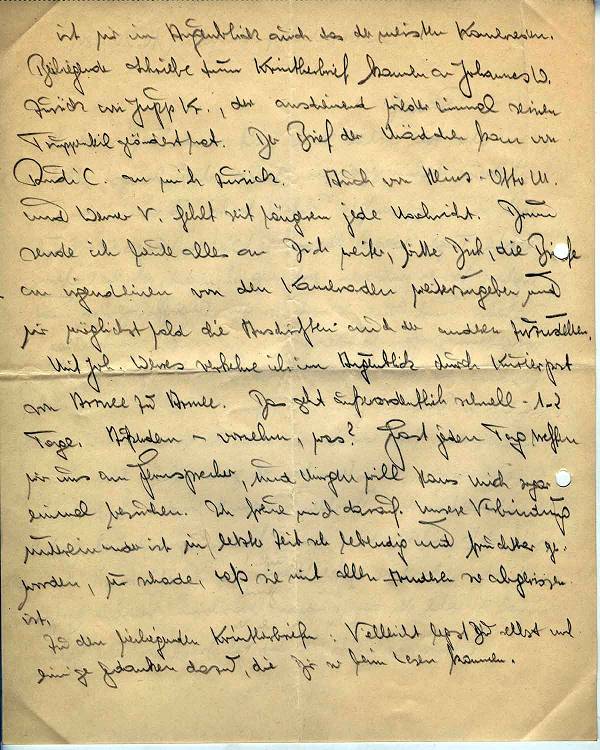 ist mir im Augenblick auch das der meisten Kameraden.
Beiliegende Schriebe zum Rundbrief kamen an Johannes W.
zurück an Jupp K., der anscheinend wieder einmal seinen
Truppenteil geändert hat. Der Brief der Mädchen kam von
Rudi C. an mich zurück. Auch von Otto M.
und Werner V. fehlt seit längerem jede Nachricht. Drum
sende ich heute alles an Dich weiter, bitte Dich, die Briefe
an irgendeinen von den Kameraden weiterzugeben und
mir möglichst bald die Anschriften auch der anderen
Mit Joh. verkehre ich im Augenblick durch Kurierpost
von Armee zu Armee. Das geht außerordentlich schnell - 1-2
Tage. Außerdem - vornehm, was? Fast jeden Tag treffen
wir uns am Fernsprecher, und will Hans mich sogar
einmal besuchen. Ich freue mich darauf. Unsere Verbindung
untereinander ist in letzter Zeit sehr lebendig und fruchtbar ge-
worden, nur schade, daß sie mit allen anderen so abgerissen
ist.
Zu den beiliegenden : Vielleicht legst Du selbst noch
einige Gedanken dazu, die Dir so beim Lesen kommen.